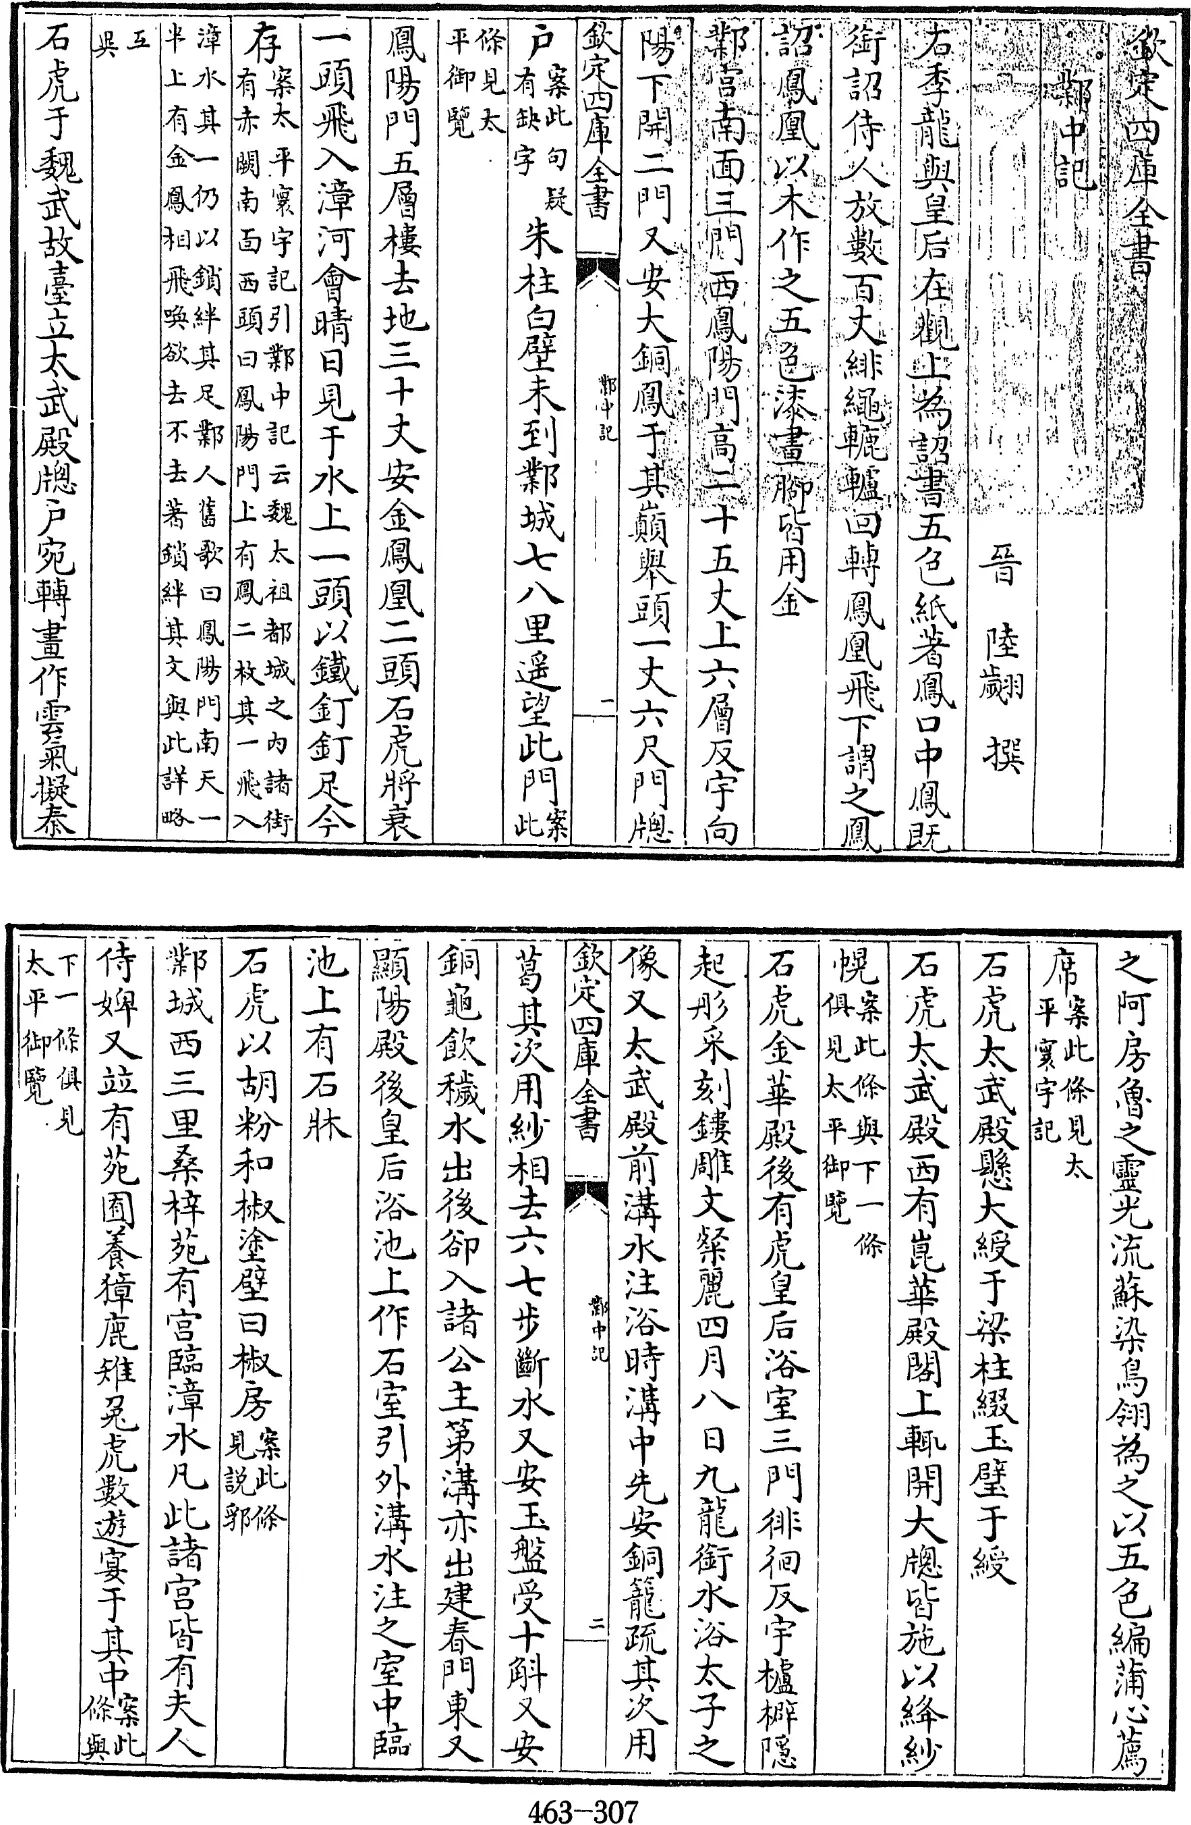 欽定四庫全書
鄴中記
晉　陸翽　撰
石季龍與皇后在觀上為詔書五色紙著鳳口中鳳既
銜詔侍人放數百丈緋繩轆轤回轉鳳凰飛下謂之鳳
詔鳳凰以木作之五色漆畫腳皆用金
鄴宮南面三門西鳳陽門高二十五丈上六層反宇向
陽下開二門又安大銅鳳于其巔舉頭一丈六尺門牕
欽定四庫全書
鄴中記
一
户案此句疑有缺字朱柱白壁未到鄴城七八里遥望此門案此
條見太平御覽
鳳陽門五層樓去地三十丈安金鳳凰二頭石虎將衰
一頭飛入漳河會晴日見于水上一頭以鐵釘釘足今
存案太平寰宇記引鄴中記云魏太祖都城之内諸街有赤闕南面西頭曰鳳陽門上有鳳二枚其一飛入
漳水其一仍以鎖絆其足鄴人舊歌曰鳳陽門南天一半上有金鳳相飛喚欲去不去著鎖絆其文與此詳略
互異
石虎于魏武故臺立太武殿牕户宛轉畫作雲氣擬秦
之阿房魯之靈光流蘇染鳥翎為之以五色編蒲心薦
席案此條見太平寰宇記
石虎太武殿懸大綬于梁柱綴玉璧于綬
石虎太武殿西有崑華殿閣上輒開大牕皆施以絳紗
幌案此條與下一條俱見太平御覽
石虎金華殿後有虎皇后浴室三門徘徊反宇櫨檘隱
起彤采刻鏤雕文粲麗四月八日九龍銜水浴太子之
像又太武殿前溝水注浴時溝中先安銅籠疏其次用
欽定四庫全書
鄴中記
二
葛其次用紗相去六七步斷水又安玉盤受十斛又安
銅龜飲穢水出後卻入諸公主第溝亦出建春門東又
顯陽殿後皇后浴池上作石室引外溝水注之室中臨
池上有石牀
石虎以胡粉和椒塗壁曰椒房案此條見說郛
鄴城西三里桑梓苑有宮臨漳水凡此諸宮皆有夫人
侍婢又竝有苑囿養獐鹿雉兔虎數遊宴于其中案此條與
下一條俱見太平御覽
463-307